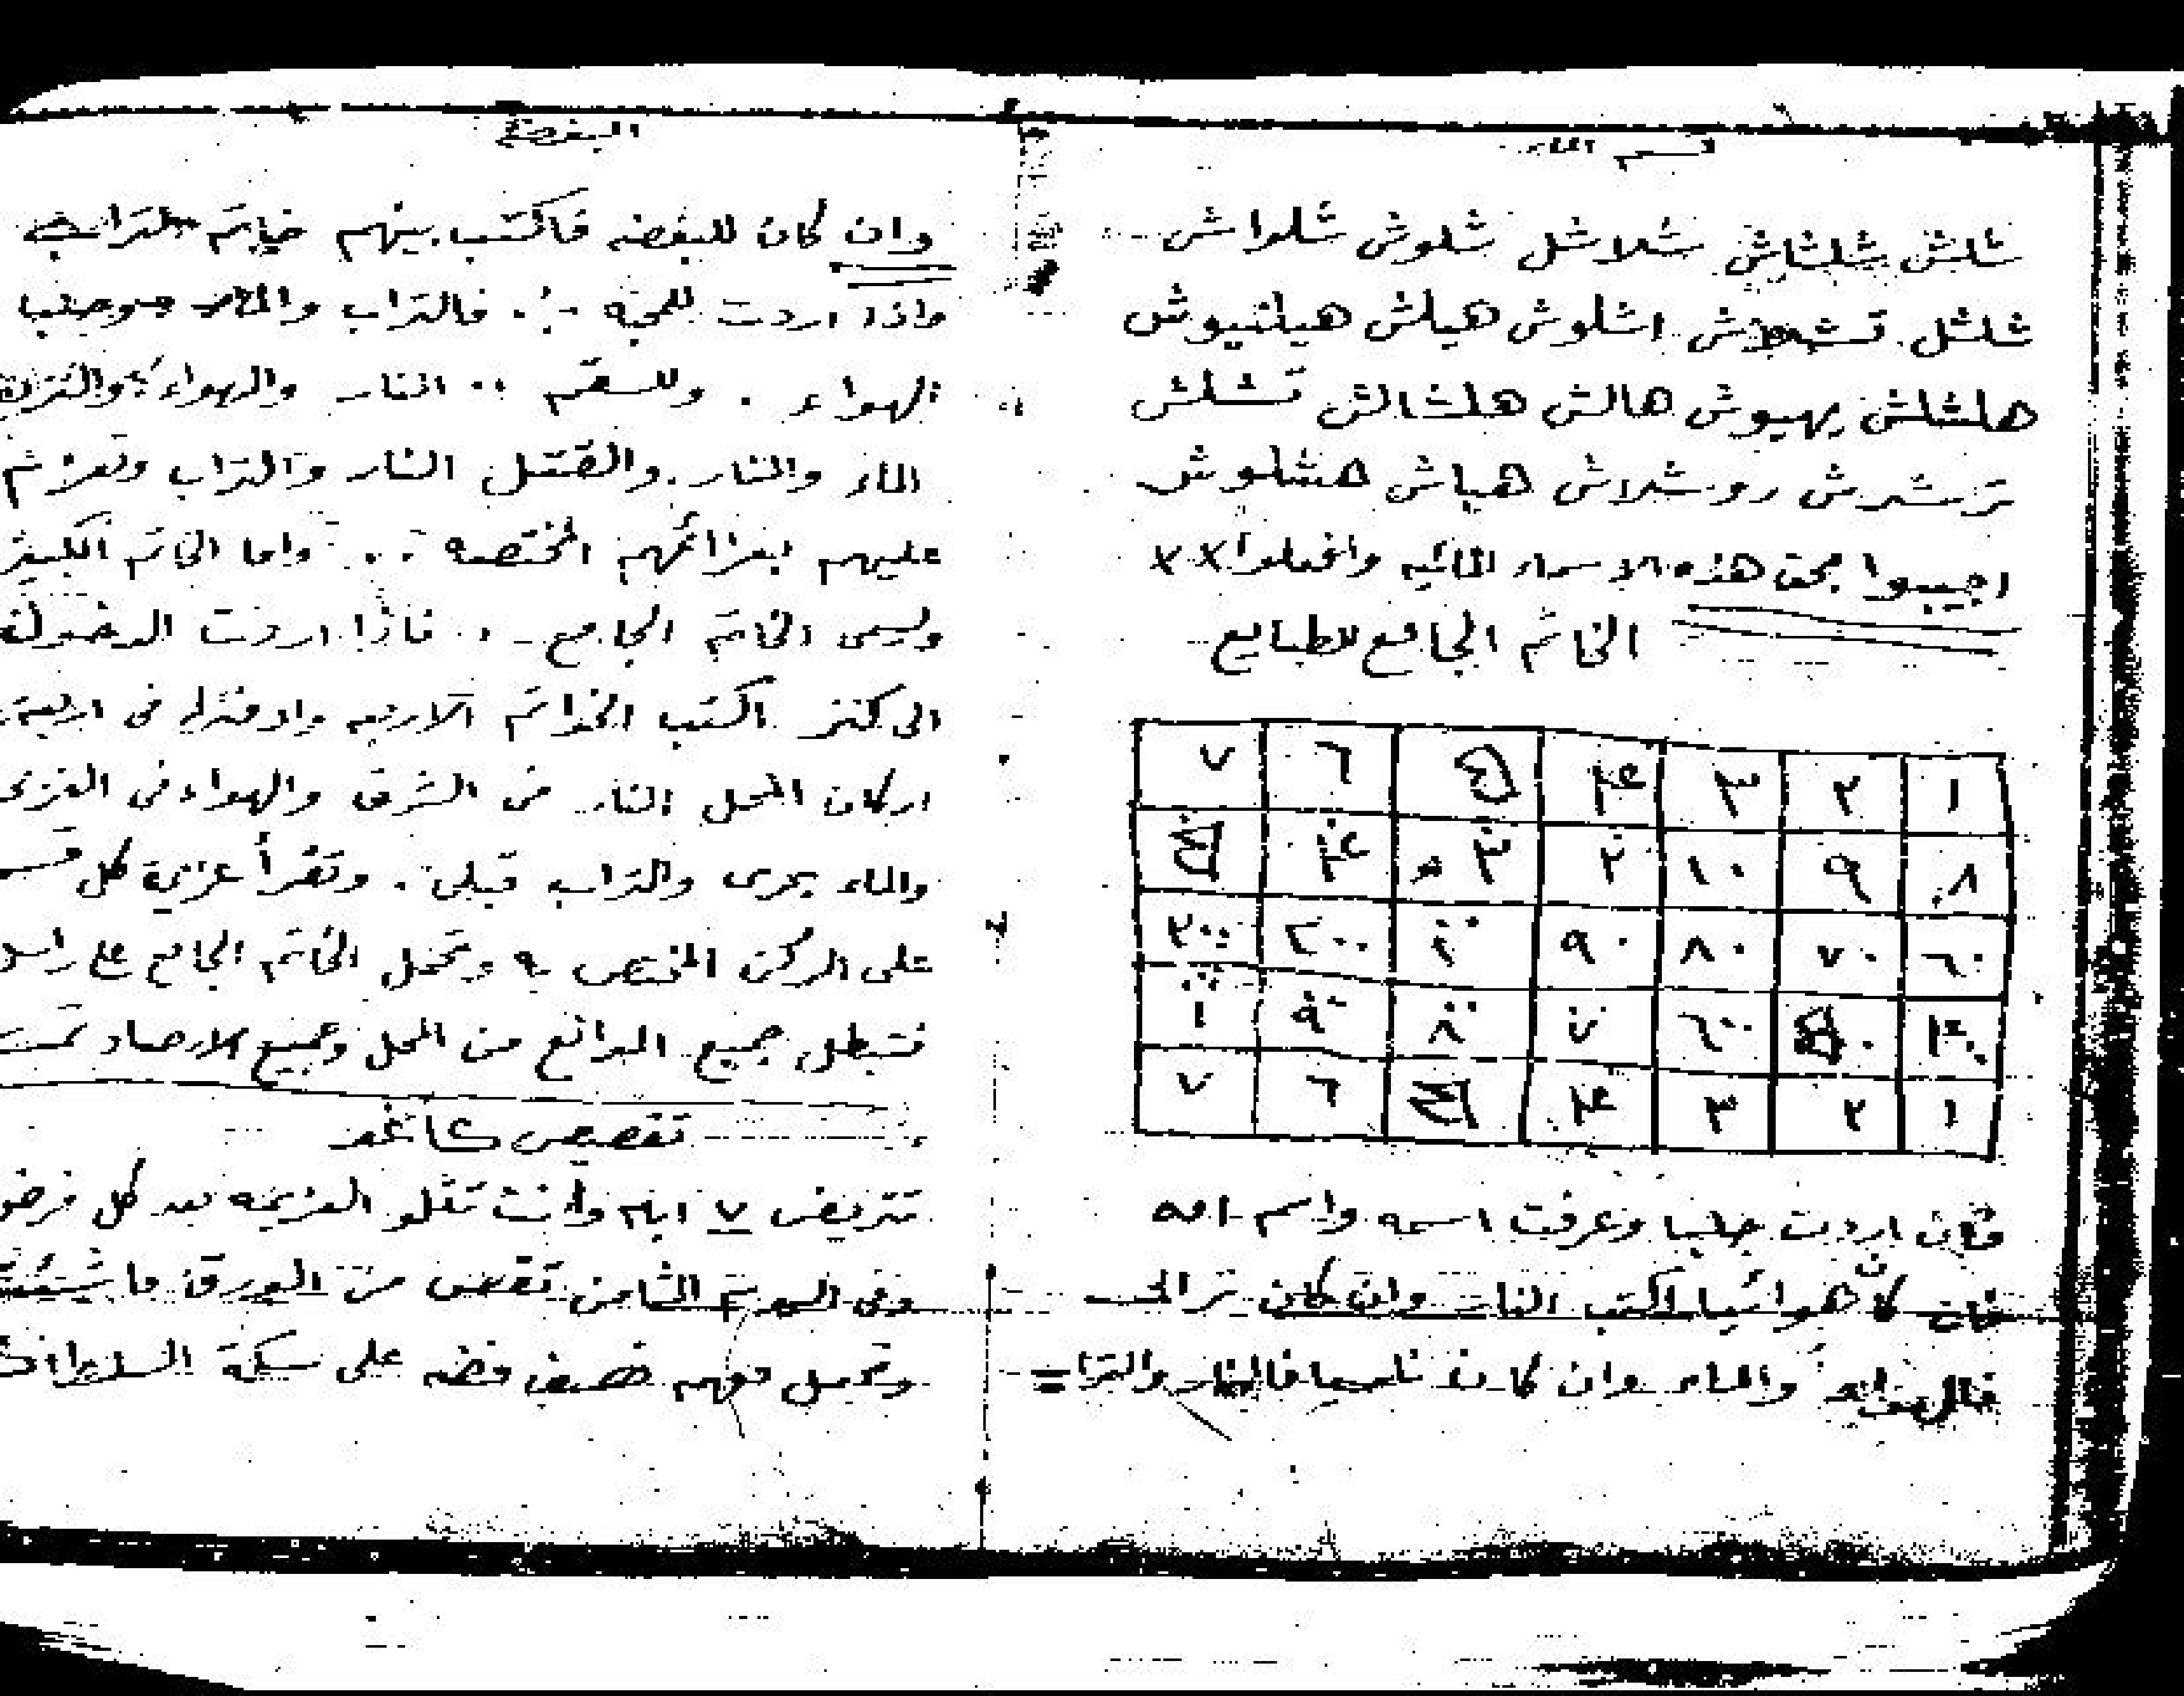 قسم الماء
شلش شلشاش شلاشل شلوش شلواش
شلشل اشلوش هيلش هيلشيوش
هلشلش يهيوش هالش هلشالش تشلش
ترشرش روشلاش هياش هشلوش
اجيبوا بحق هذه الاسماء المائيه وافعلوا ××
الخاتم الجامع للطبايع
١ ٢ ٣ ٤ ٥ ٦ ٧
٨ ٩ ١٠ ٢٠ ٣٠ ٤٠ ٥٠
٦٠ ٧٠ ٨٠ ٩٠ ١٠٠ ٢٠٠ ٣٠٠
٤٠٠ ٥٠٠ ٦٠٠ ٧٠٠ ٨٠٠ ٩٠٠ ١٠٠٠
١ ٢ ٣ ٤ ٥ ٦ ٧
فان اردت جلبا وعرفت اسمه واسم امه
فان كان هوائيا اكتب النار وان كان ترابى
فالهواء والماء وان كان ناريا فالنار والتراب
البغضة
وان كان للبغضه فاكتب بينهم خاتم التراب
واذا اردت للمحبه فالتراب والماء وجلبا
الهواء . وللسقم النار والهواء والتراب
الماء والنار . والقتل النار والتراب وتعزم
عليهم بعزائمهم المختصه . واما الخاتم الكبير
ويسمى الخاتم الجامع . فاذا اردت الدخول
الى كنز اكتب الخواتم الاربعه وادفنها فى اربعة
اركان المحل النار فى الشرق والهواء فى الغرب
والماء بحرى والتراب قبلى . وتقرأ عزيمة كل قسم
على الركن المختص به وتحمل الخاتم الجامع على راسك
فتبطل جميع الموانع من المحل وجميع الارصاد تمت
تقصيص كاغد
تتريض ٧ ايام وانت تتلو العزيمه بعد كل فرض
وفى اليوم الثامن تقص من الورق ما شئت
وتجعل معهم نصف فضه على سكة السلطان